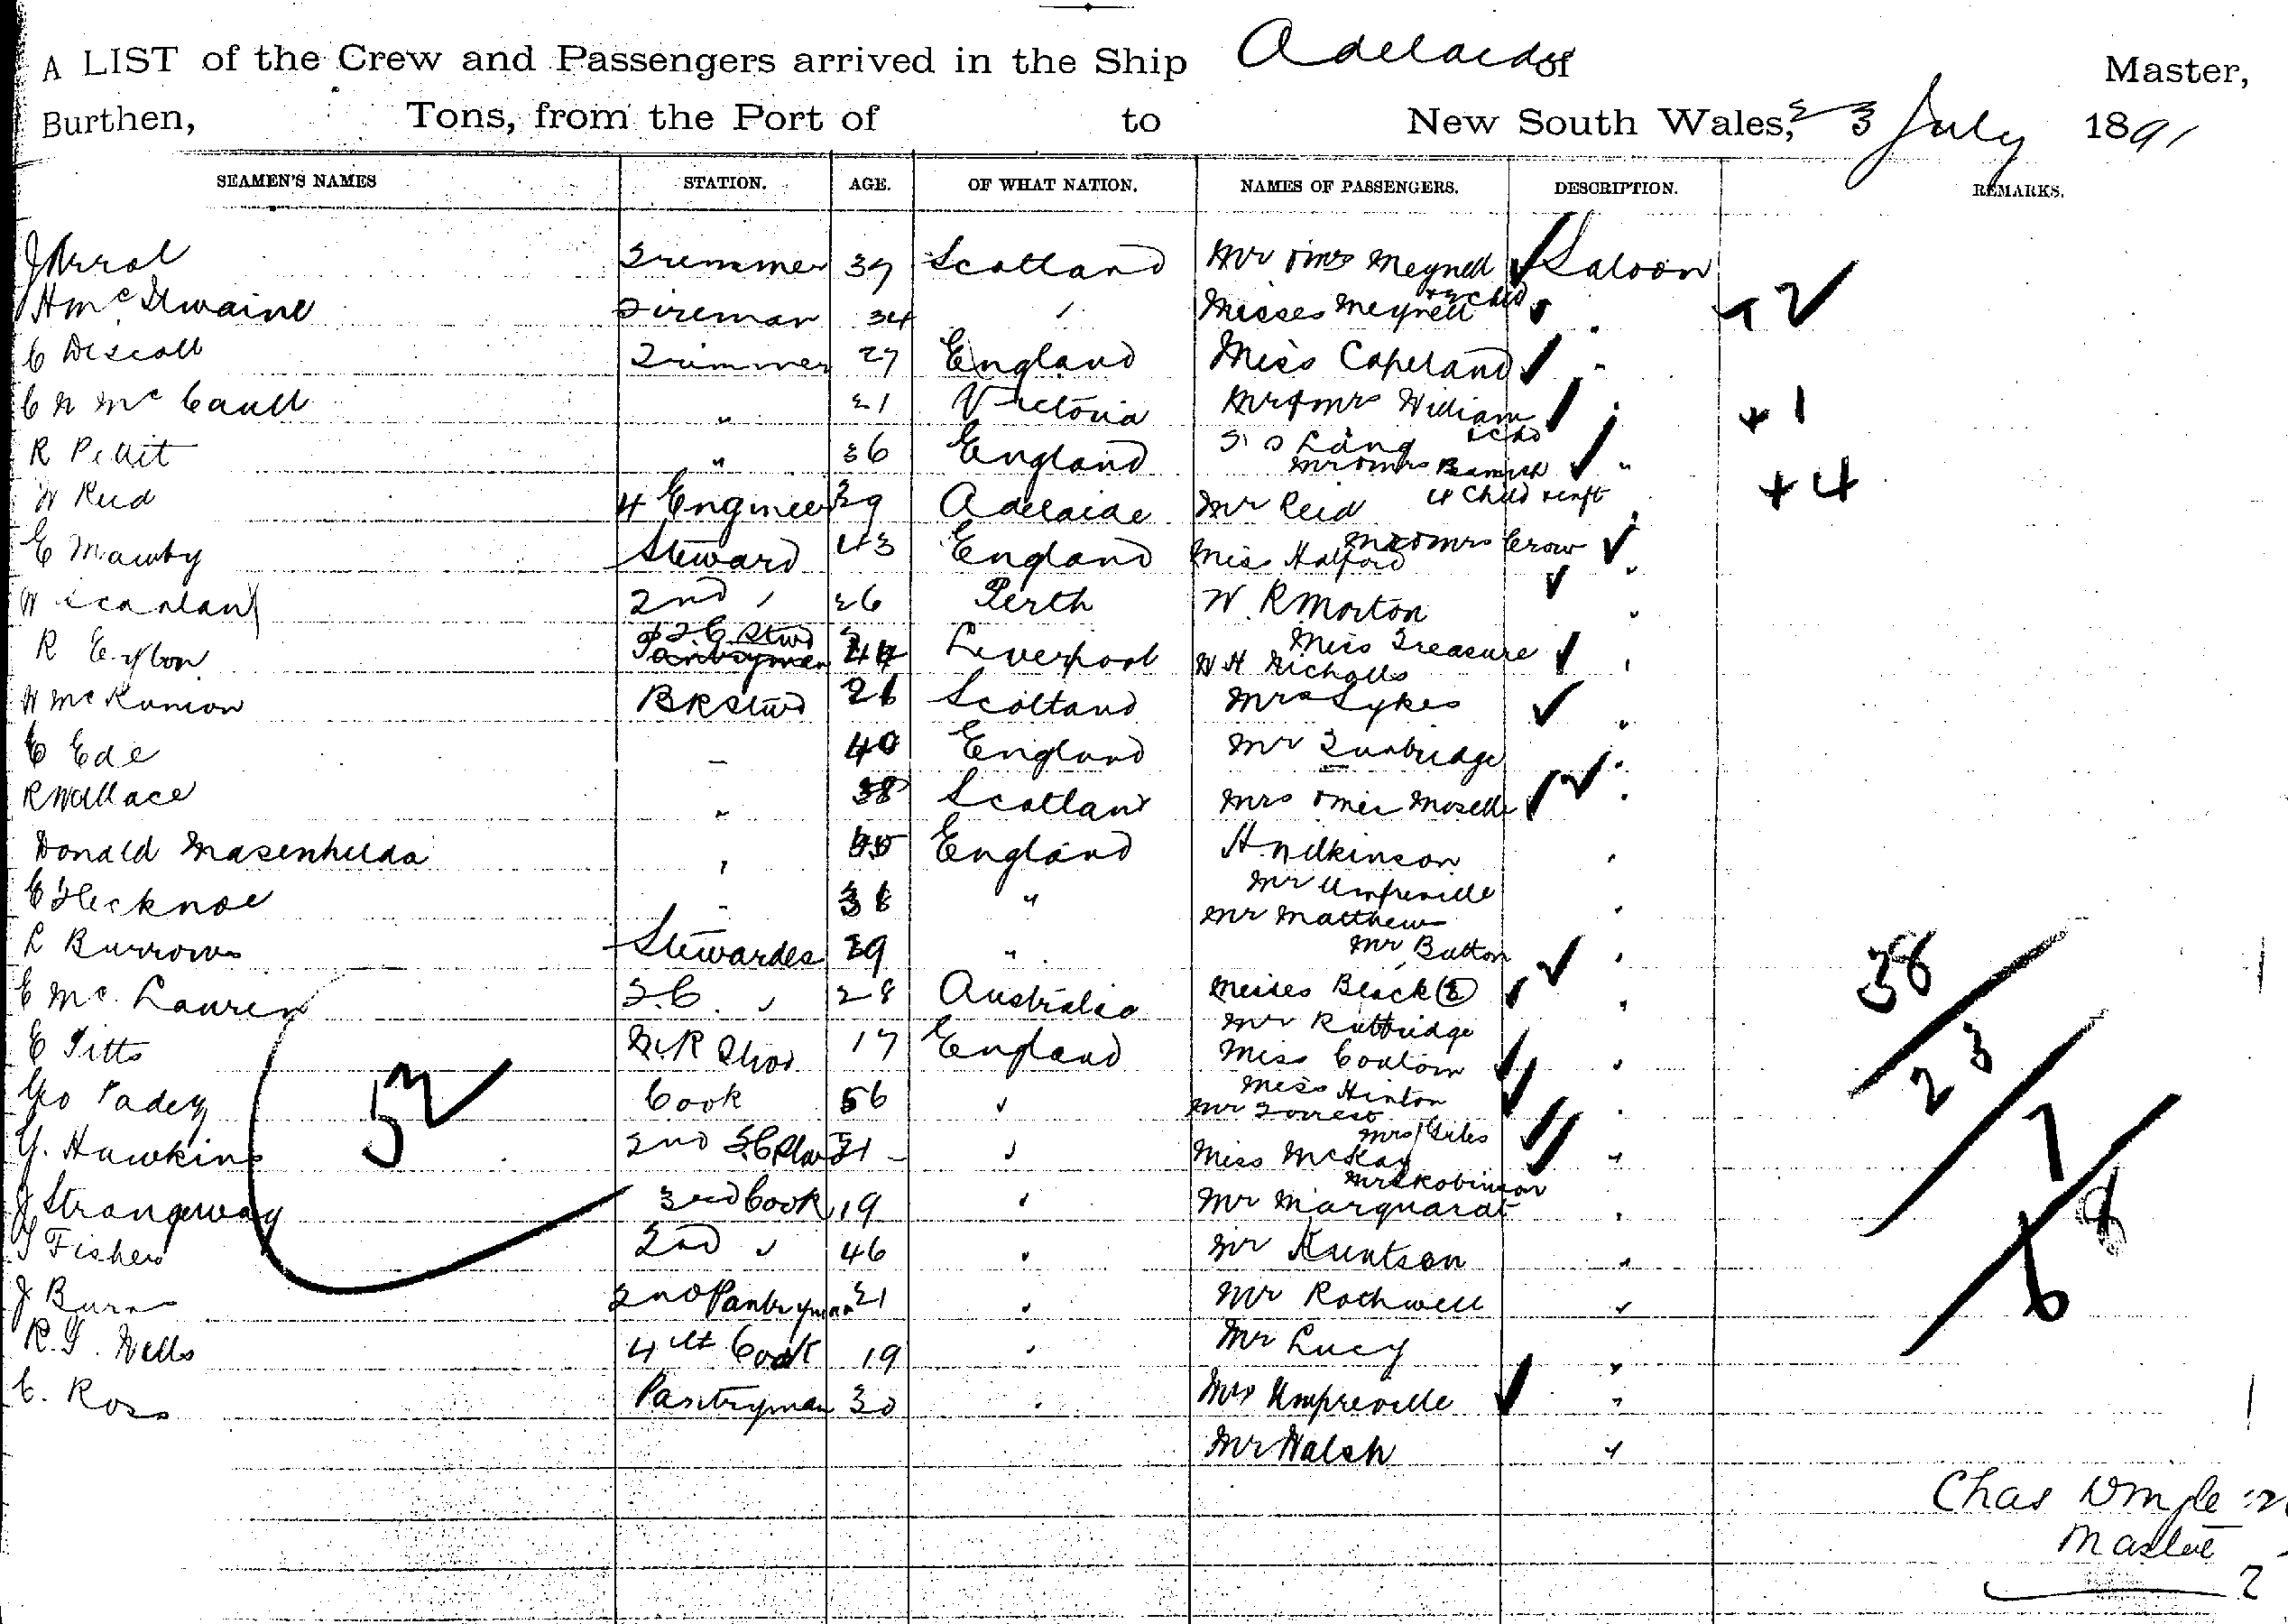 A LIST of the Crew and Passengers arrived in the Ship Adelaide of Master,
Burthen, Tons, from the Port of to New South Wales, 23 July 1891
SEAMEN'S NAMES STATION. AGE. OF WHAT NATION. NAMES OF PASSENGERS. DESCRIPTION. REMARKS.
J Arrol Tremmer 39 Scotland Mr & Mrs Meynell Saloon
H Mc Ilwaine Fireman 34 " Misses Meynell +2
C Discoll Trimmer 27 England Miss Copeland "
C N Mc Caull " 21 Victoria Mr & Mrs William "  +1
R Pettit " 36 England Lang
Mr & Mrs Bamish "  +4
W Reid 4 Engineer 29 Adelaide Mr Reid 4 Child & inft "
E Mawby Steward 43 England Miss Halford Mr & Mrs Crow "
W Scanlan 2nd " 26 Perth W. R Morton "
R Eyton S. C. Stwd Pantryman Liverpool Miss Treasure "
W H Nicholls
W McKunion B R Stwd 26 Scotland Mrs Sykes "
C Ede " 40 England Mr Tunbridge "
R Wallace " 38 Scotland Mrs & Miss Moselle "
Donald Masenhelda " England H. Wilkinson "
Mr Umpreville
C Flecknoe " " Mr Matthew "
L Burrows Stewardess 29 " Mr Button "
E Mc. Lauren S. C. " 28 Australia Misses Black (2) "
Mr Ruttridge
E Pitts R Stwd 17 England Miss Coulom "
Miss Hinton
Geo Padey Cook 56 " Mr Forrest "
Mrs Giles
G. Hawkins 52 2nd S. C Stwd 21 " Miss McKay "
Mrs Robinson
J Strangeway 3rd Cook 19 " Mr Marquardt "
T Fisher 2nd " 46 " Mr Kuntson "
J Burns 2nd Pantryman 21 " Mr Rothwell "
R. G. Wells 4th Cook 19 " Mr Lucy "
C. Ross Pantryman 30 " Mrs Umpreville "
Mr Walsh "
38/23/7/6 8
Chas
Master